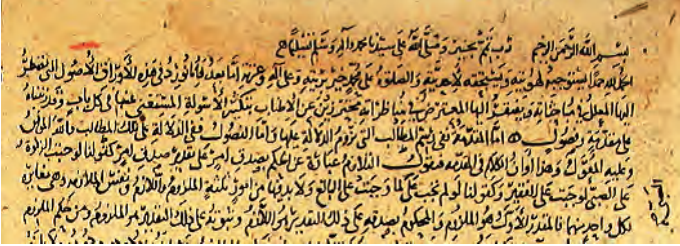 بسم الله الرحمن الرحيم رب تمم بخير وصلى الله على سيدنا محمد وآله وسلم تسليما
الحمد لله حمدا يستوجبه لهويته ويستحقه لإلهيته والصلوة على محمد خير بريته وعلى آله وعترته أما بعد فإنا نورد في هذه الأوراق الأصول التي يضطر
إليها المعلل في مباحثاته ويفتقر إليها المعترض في مناظراته محترزين عن الإطناب بتكثير الأسولة المستغنى عنها في كل باب
على مقدمة وفصول أما المقدمة ففي المطالب التي نروم الدلالة عليها وأما الفصول ففي الدلالة على تلك المطالب والله الموفق
وعليه المعول وهذا أوان الكلام في المقدمة فنقول التلازم عبارة عن الحكم بصدق أمر على تقدير صدق أمر كقولنا لو وجبت الزكوة
على الصبي لوجبت على الفقير وكقولنا لو لم تجب على لما وجبت على البالغ ولا بد فيها من أمور ثلثة الملزوم واللازم ونفس الملازمة وهي مغايرة
لكل واحد منهما فالمقدر الأول هو الملزوم والمحكوم بصدقه على ذلك التقدير هو اللازم وثبوته على ذلك التقدير هو الملازمة ومن حكم الملزوم